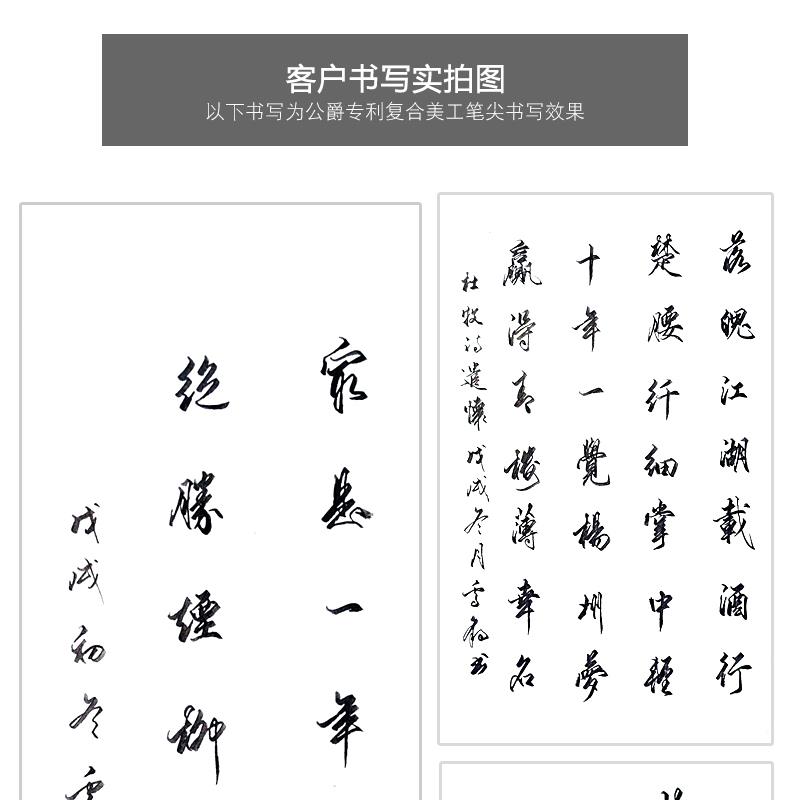 客户书写实拍图
以下书写为公爵专利复合美工笔尖书写效果
最是一年
绝胜烟柳
戊戌初冬雪
落魄江湖載酒行
楚腰纤細掌中輕
十年一覺楊州夢
贏得青楼薄幸名
杜牧诗遣懷戊戌冬月雪
书